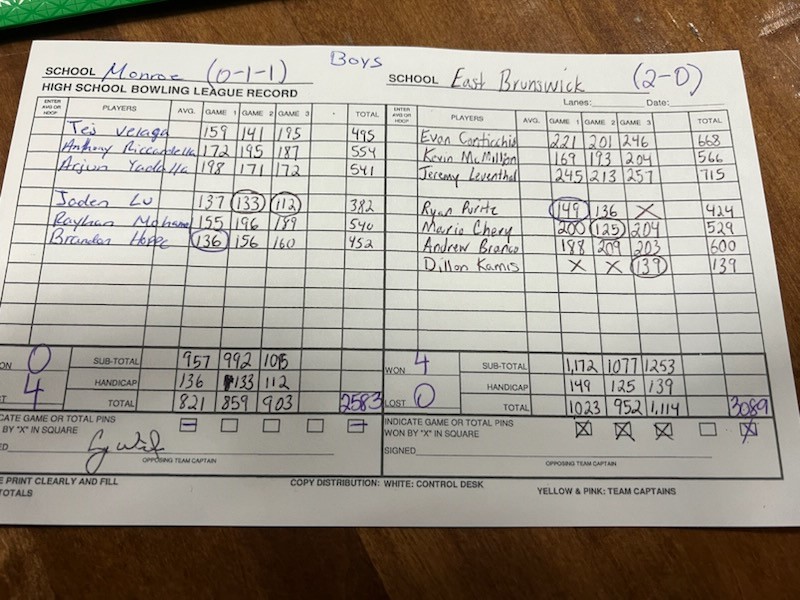 Boys
SCHOOL Monroe (0-1-1)
HIGH SCHOOL BOWLING LEAGUE RECORD
ENTER AVG OR HDCP PLAYERS AVG. GAME 1 GAME 2 GAME 3 TOTAL
Tej Velaga 159 141 195 495
Anthony Riccardella 172 195 187 554
Arjun Yadalla 198 171 172 541
Jaden Lu 137 133 112 382
Rayhan Mohame 155 196 189 540
Brandon Hoppe 136 156 160 452
ON 0 SUB-TOTAL 957 992 1015
HANDICAP 136 133 112
T 4 TOTAL 821 859 903 2583
ICATE GAME OR TOTAL PINS
BY "X" IN SQUARE
ED
OPPOSING TEAM CAPTAIN
E PRINT CLEARLY AND FILL
TOTALS
SCHOOL East Brunswick (2-0)
Lanes: Date:
ENTER AVG OR HDCP PLAYERS AVG. GAME 1 GAME 2 GAME 3 TOTAL
Evan Conticchio 221 201 246 668
Kevin McMillan 169 193 204 566
Jeremy Leventhal 245 213 257 715
Ryan Puritz 149 136 X 424
Mario Chery 200 125 204 529
Andrew Branco 188 209 203 600
Dillon Kamis X X 139 139
WON 4 SUB-TOTAL 1,172 1077 1253
HANDICAP 149 125 139
LOST 0 TOTAL 1023 952 1,114 3089
INDICATE GAME OR TOTAL PINS
WON BY "X" IN SQUARE X X X X
SIGNED
OPPOSING TEAM CAPTAIN
COPY DISTRIBUTION: WHITE: CONTROL DESK YELLOW & PINK: TEAM CAPTAINS